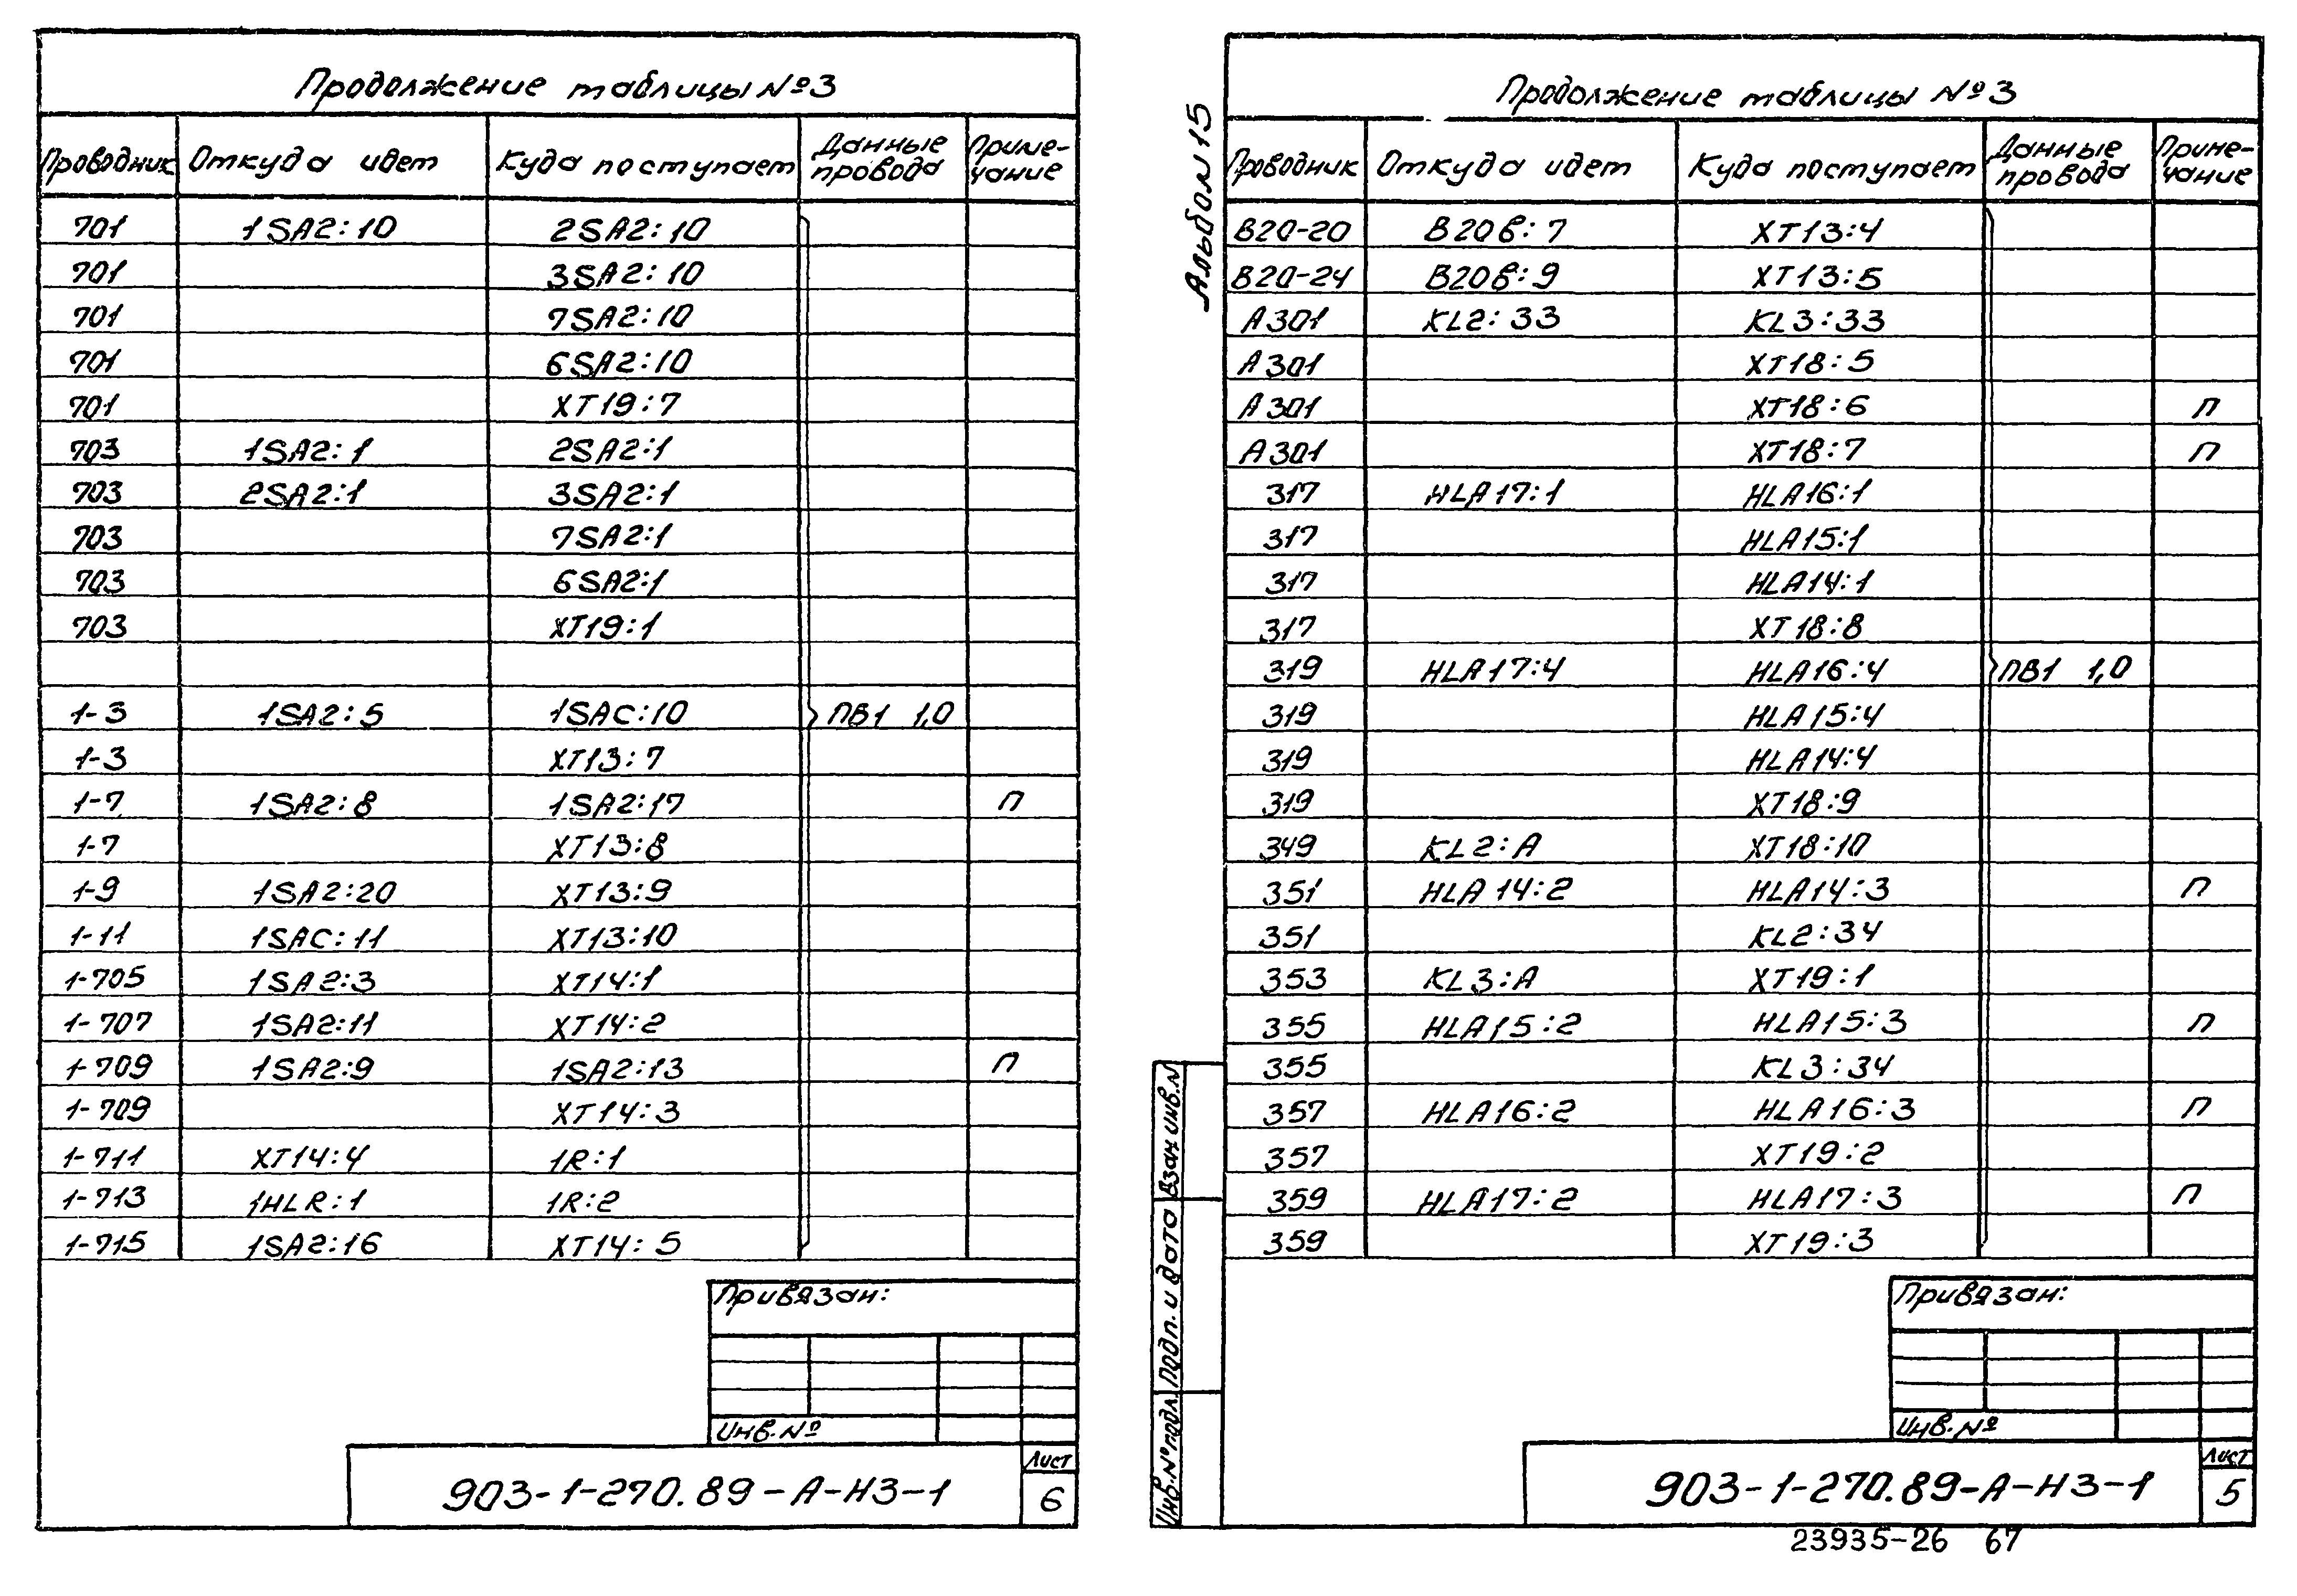 Продолжение таблицы №3
Проводник Откуда идет Куда поступает Данные провода Приме-чание
701 1SA2:10 2SA2:10
701 3SA2:10
701 7SA2:10
701 6SA2:10
701 XT19:7
703 1SA2:1 2SA2:1
703 2SA2:1 3SA2:1
703 7SA2:1
703 6SA2:1
703 XT19:1
1-3 1SA2:5 1SAC:10 ПВ1 1,0
1-3 XT13:7
1-7 1SA2:8 1SA2:17 П
1-7 XT13:8
1-9 1SA2:20 XT13:9
1-11 1SAC:11 XT13:10
1-705 1SA2:3 XT14:1
1-707 1SA2:11 XT14:2
1-709 1SA2:9 1SA2:13 П
1-709 XT14:3
1-711 XT14:4 1R:1
1-713 1HLR:1 1R:2
1-715 1SA2:16 XT14:5
Привязан:
Инв.№
903-1-270.89-А-НЗ-1
Лист
6
Альбом 15
Продолжение таблицы №3
Проводник Откуда идет Куда поступает Данные провода Приме-чание
В20-20 В20в:7 XT13:4
В20-24 В20в:9 XT13:5
А301 KL2:33 KL3:33
А301 XT18:5
А301 XT18:6 П
А301 XT18:7 П
317 HLA17:1 HLA16:1
317 HLA15:1
317 HLA14:1
317 XT18:8
319 HLA17:4 HLA16:4 ПВ1 1,0
319 HLA15:4
319 HLA14:4
319 XT18:9
349 KL2:A XT18:10
351 HLA14:2 HLA14:3 П
351 KL2:34
353 KL3:A XT19:1
355 HLA15:2 HLA15:3 П
355 KL3:34
357 HLA16:2 HLA16:3 П
357 XT19:2
359 HLA17:2 HLA17:3 П
359 XT19:3
Взам инв.№
Подп. и дата
Инв.№ подл.
Привязан:
Инв.№
903-1-270.89-А-НЗ-1
Лист
5
23935-26 67